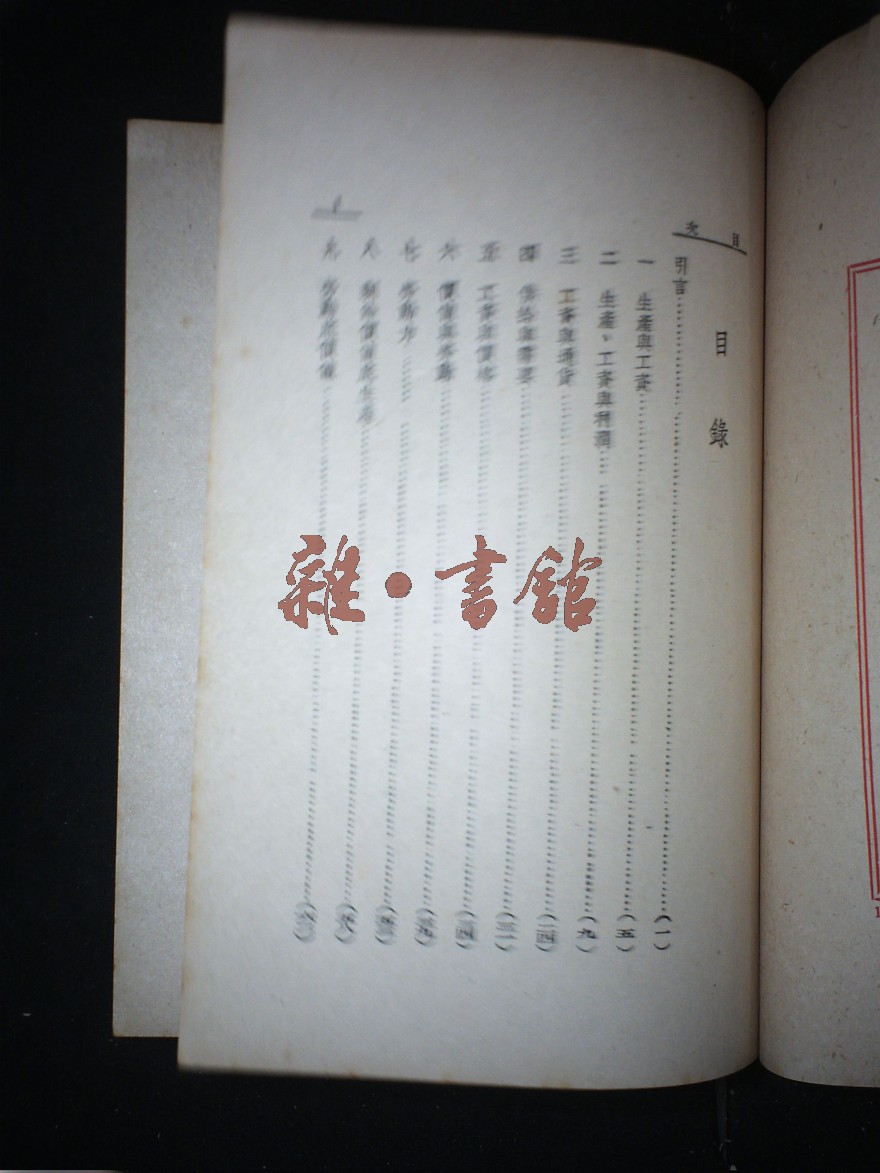 目次
目錄
引言……(一)
一 生產與工資……(五)
二 生產、工資與利潤……(九)
三 工資與通貨……(二四)
四 供給與需要……(三一)
五 工資與價格……
六 價值與勞動……(三九)
七 勞動力……
八 剩餘價值底生產……
九 勞動底價值……
雜·書館